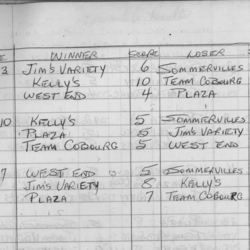 E WINNER SCORE LOSER
3 JIM'S VARIETY 6 SOMMERVILLES
KELLY'S 10 TEAM COBOURG
WEST END 4 PLAZA
10 KELLY'S 5 SOMMERVILLES
PLAZA 5 JIM'S VARIETY
TEAM COBOURG 5 WEST END
7 WEST END 5 SOMMERVILLES
JIM'S VARIETY 8 KELLY'S
PLAZA 7 TEAM COBOURG